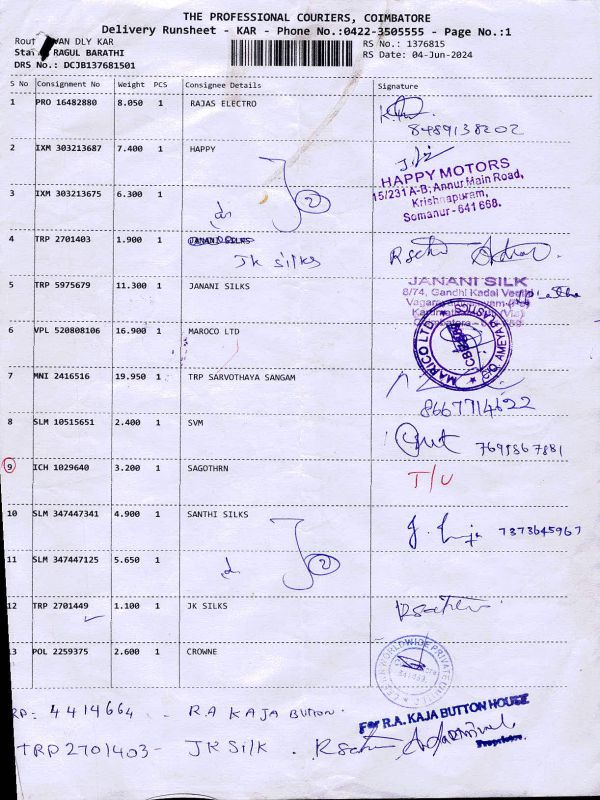 THE PROFESSIONAL COURIERS, COIMBATORE
Delivery Runsheet - KAR - Phone No.:0422-3505555 - Page No.:1
VAN DLY KAR
RS No.: 1376815
RAGUL BARATHI
RS Date: 04-Jun-2024
DRS No.: DCJB137681501
S No Consignment No Weight PCS Consignee Details Signature
1 PRO 16482880 8.050 1 RAJAS ELECTRO
8489138202
2 IXM 303213687 7.400 1 HAPPY
HAPPY MOTORS
15/231 A-B, Annur Main Road,
Krishnapuram,
Somanur - 641 668.
3 IXM 303213675 6.300 1
2
4 TRP 2701403 1.900 1 JANANI SILKS
JK silks
5 TRP 5975679 11.300 1 JANANI SILKS
JANANI SILK
8/74, Gandhi Kadai Veethi
6 VPL 520808106 16.900 1 MAROCO LTD
MARICO LTD. C/O. AMEYA PLASTICS
7 MNI 2416516 19.950 1 TRP SARVOTHAYA SANGAM
8667714622
8 SLM 10515651 2.400 1 SVM
7699867881
9 ICH 1029640 3.200 1 SAGOTHRN
T/U
10 SLM 347447341 4.900 1 SANTHI SILKS
7373645967
11 SLM 347447125 5.650 1
2
12 TRP 2701449 1.100 1 JK SILKS
13 POL 2259375 2.600 1 CROWNE
4414664 - R.A KAJA BUTTON.
For R.A. KAJA BUTTON HOUSE
Proprietor.
TRP 2701403 - JK Silk.